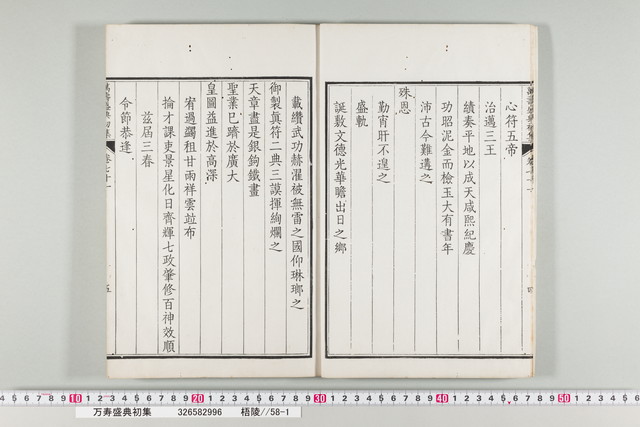 心符五帝
治邁三王
績奏平地以成天咸熙紀慶
功昭泥金而檢玉大有書年
沛古今難遘之
殊恩
勤宵肝不遑之
盛軌
誕敷文德光華瞻出日之鄉
載纘武功赫濯被無雷之國仰琳瑯之
御製眞符二典三謨揮絢爛之
天章畫是銀鉤鐵畫
聖業已躋於廣大
皇圖益進於高深
宥過蠲租甘雨祥雲竝布
掄才課吏景星化日齊輝七政肇修百神效順
兹屆三春
令節恭逢
五
10 20 30 40 50
万寿盛典初集 326582996 梧陵//58-1